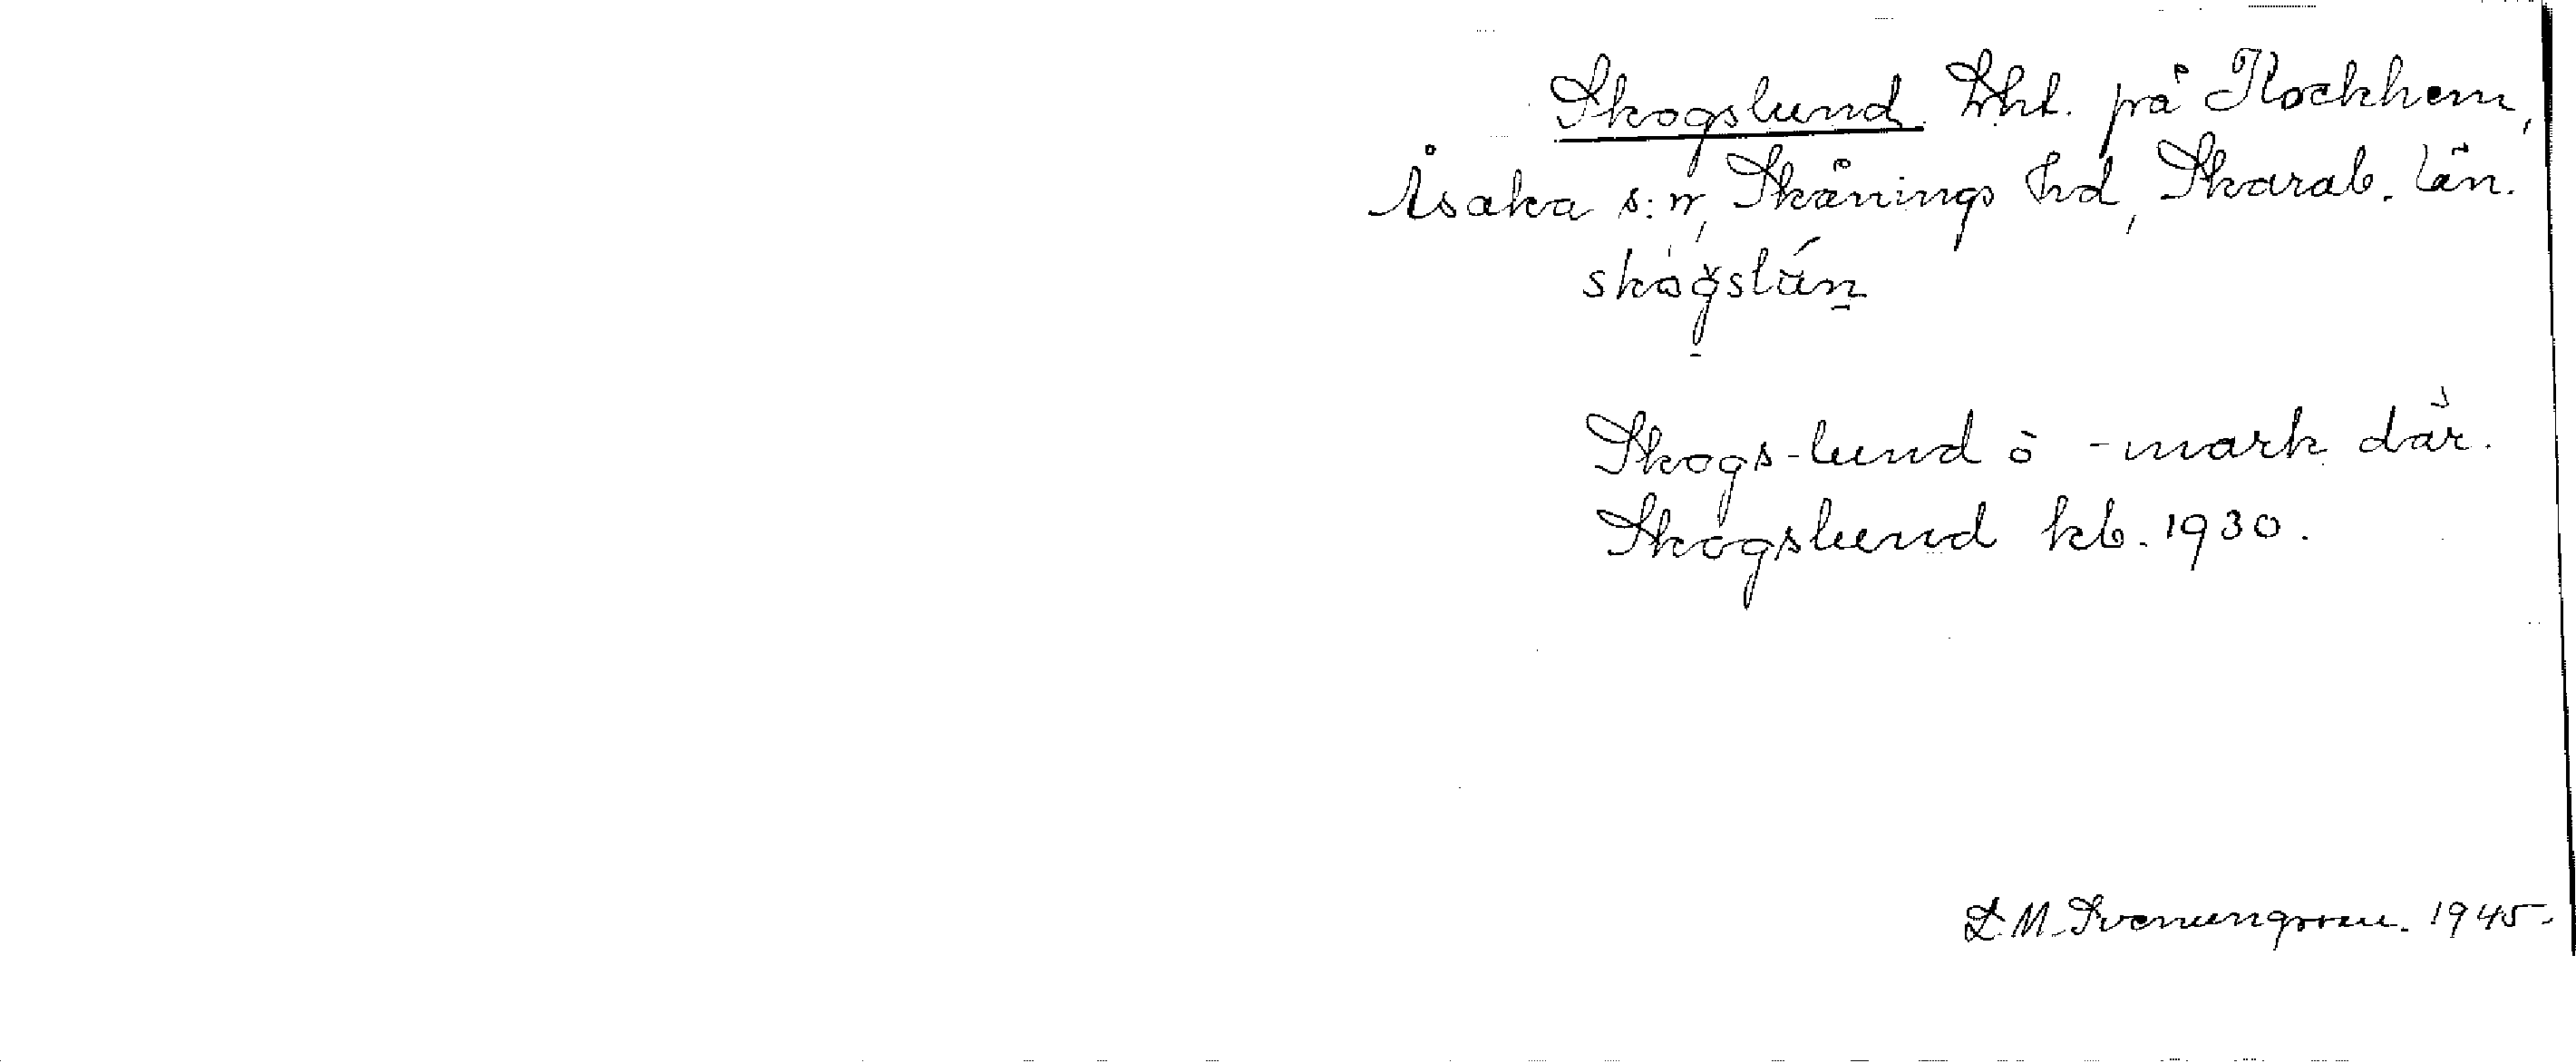 Skogslund lht. på Flockhem,
Åsaka s:n, Skånings hd, Skarab. län.
skògslún
Skogs-lund o -mark där.
Skogslund kb. 1930.
L.M. Svenungsson. 1945.